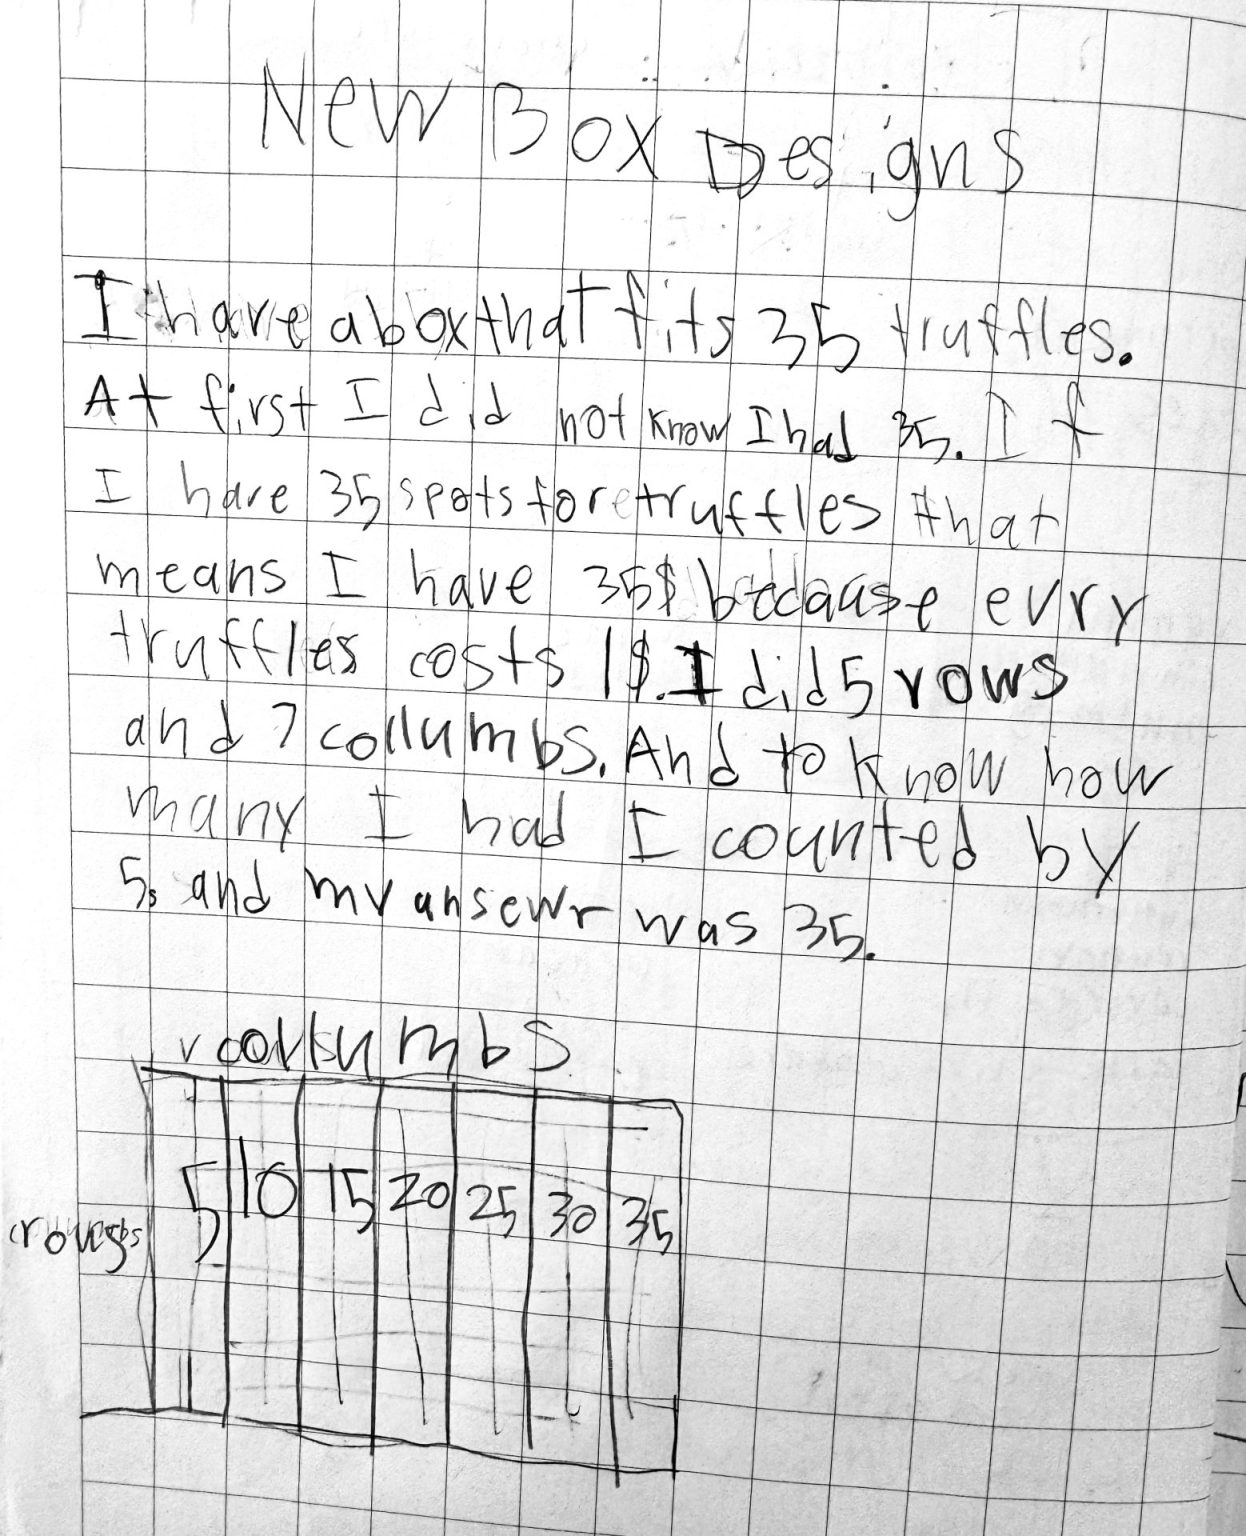 New Box Designs
I have a box that fits 35 truffles.
At first I did not know I had 35. If
I have 35 spots fore truffles that
means I have 35$ becdause evry
truffles costs 1$. I did 5 rows
and 7 collumbs. And to know how
many I had I counted by
5s and my ansewr was 35.
collumbs
5 10 15 20 25 30 35